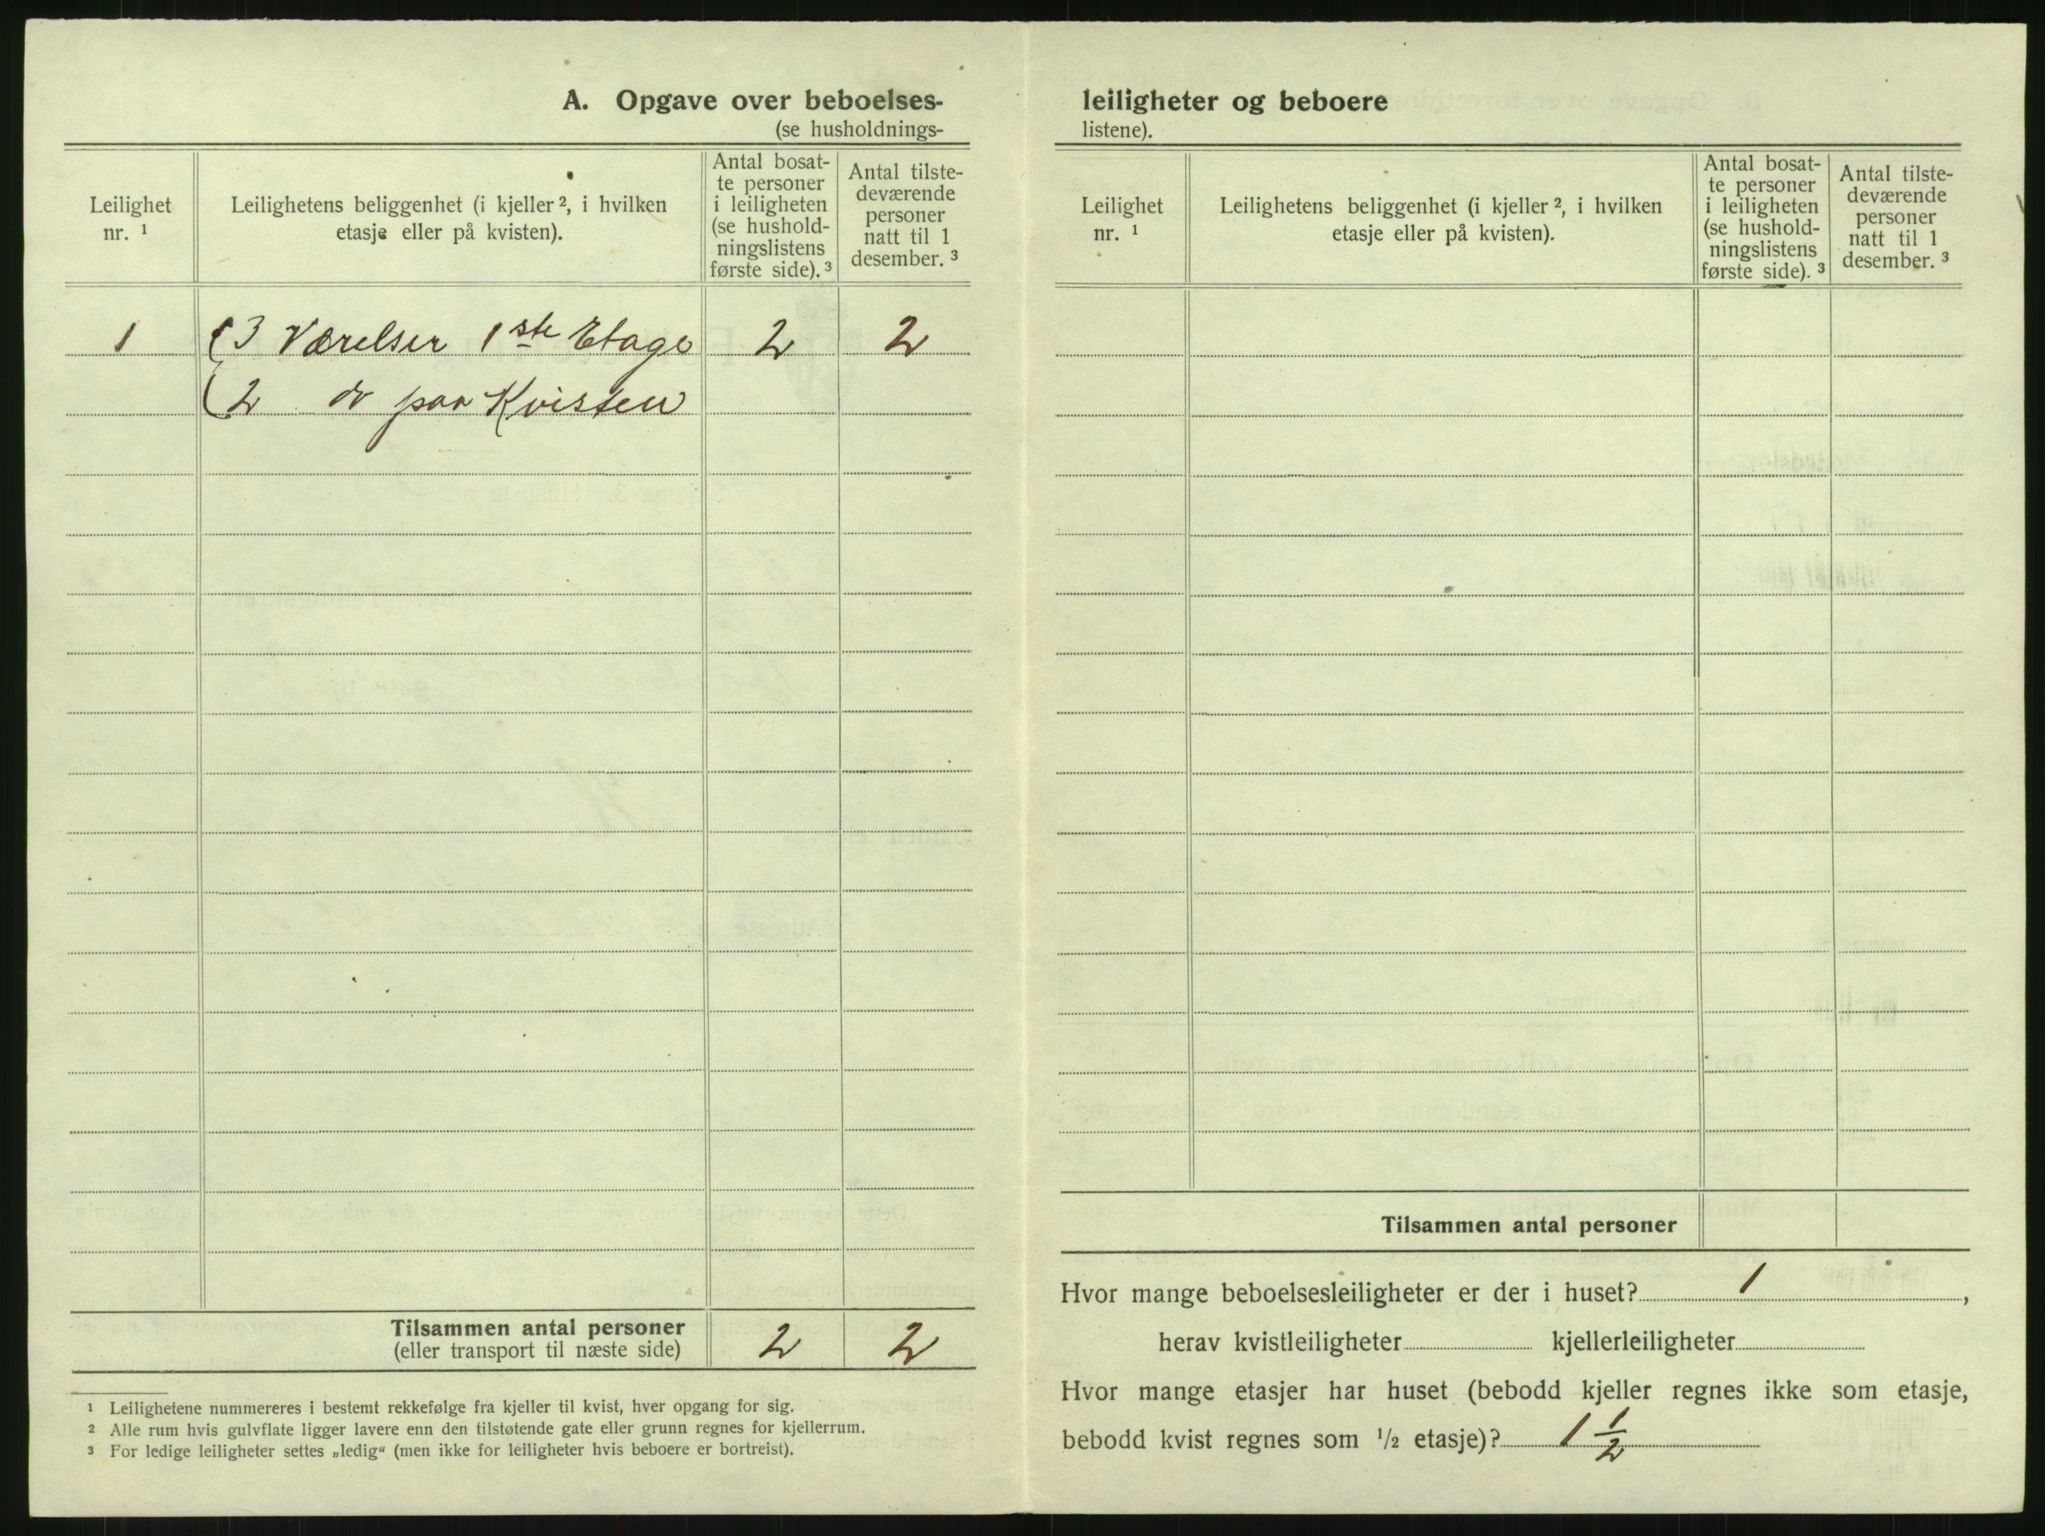 A. Opgave over beboelses-
(se husholdnings-
Leilighet
nr. ¹
Leilighetens beliggenhet (i kjeller ², i hvilken
etasje eller på kvisten).
Antal bosat-
te personer
i leiligheten
(se hushold-
ningslistens
første side). ³
Antal tilste-
deværende
personer
natt til 1
desember. ³
1 3 Værelser 1ste Etage 2 2
2 do paa Kvisten
Tilsammen antal personer 2 2
(eller transport til næste side)
¹ Leilighetene nummereres i bestemt rekkefølge fra kjeller til kvist, hver opgang for sig.
² Alle rum hvis gulvflate ligger lavere enn den tilstøtende gate eller grunn regnes for kjellerrum.
³ For ledige leiligheter settes „ledig“ (men ikke for leiligheter hvis beboere er bortreist).
leiligheter og beboere
listene).
Leilighet
nr. ¹
Leilighetens beliggenhet (i kjeller ², i hvilken
etasje eller på kvisten).
Antal bosat-
te personer
i leiligheten
(se hushold-
ningslistens
første side). ³
Antal tilste-
deværende
personer
natt til 1
desember. ³
Tilsammen antal personer
Hvor mange beboelsesleiligheter er der i huset? 1,
herav kvistleiligheter kjellerleiligheter
Hvor mange etasjer har huset (bebodd kjeller regnes ikke som etasje,
bebodd kvist regnes som ½ etasje)? 1 ½